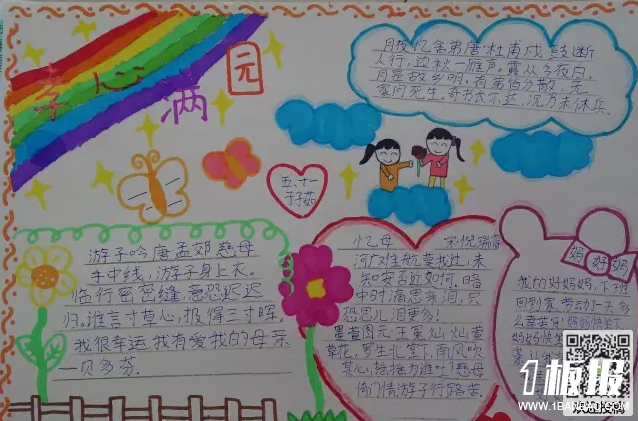 孝心满
元
月夜忆舍弟唐·杜甫戍鼓断
人行,边秋一雁声。露从今夜白,
月是故乡明。有弟皆分散,无
家问死生。寄书长不达,况乃未休兵。
五、十一
于子茹
游子吟唐孟郊慈母
手中线,游子身上衣。
临行密密缝,意恐迟迟
归。谁言寸草心,报得三寸晖
我很幸运我有爱我的母亲
——贝多芬
忆母
宋倪瑞
河广难航莫我过,未
知安否近如何。暗
中时滴思亲泪,只
恐思儿泪更多!
墨萱图元·王冕灿灿萱
草花,罗生北堂下,南风吹
其心,摇摇为谁吐?慈母
倚门情游子行路苦.
妈妈好
我的好妈妈,下班
回到家,劳动了一天多
么辛苦呀!妈妈快坐
妈妈快坐
1板报
WWW.1BANBAO.COM